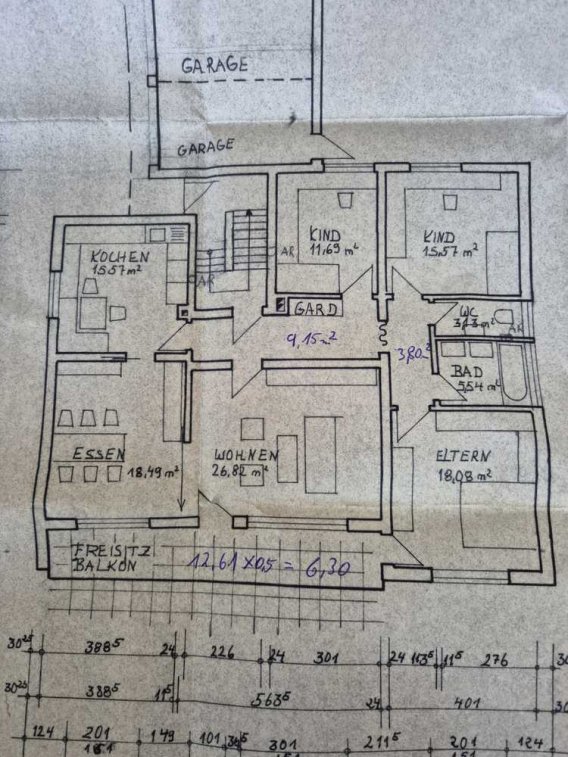 GARAGE
GARAGE
KIND
11,69 m²
KIND
15,57 m²
KOCHEN
15,57 m²
AR
AR
GARD
WC
AR
9,15 m²
3,80 ²
BAD
5,54 m²
ESSEN
18,49 m²
WOHNEN
26,82 m²
ELTERN
18,08 m²
FREISITZ
BALKON
12,61 x 0,5 = 6,30
30²⁵ 388⁵ 24 226 24 301 24 113⁵ 11⁵ 276 30
30²⁵ 388⁵ 11⁵ 563⁵ 24 401 30
124 201 149 101 301 211⁵ 201 124
151 151 151